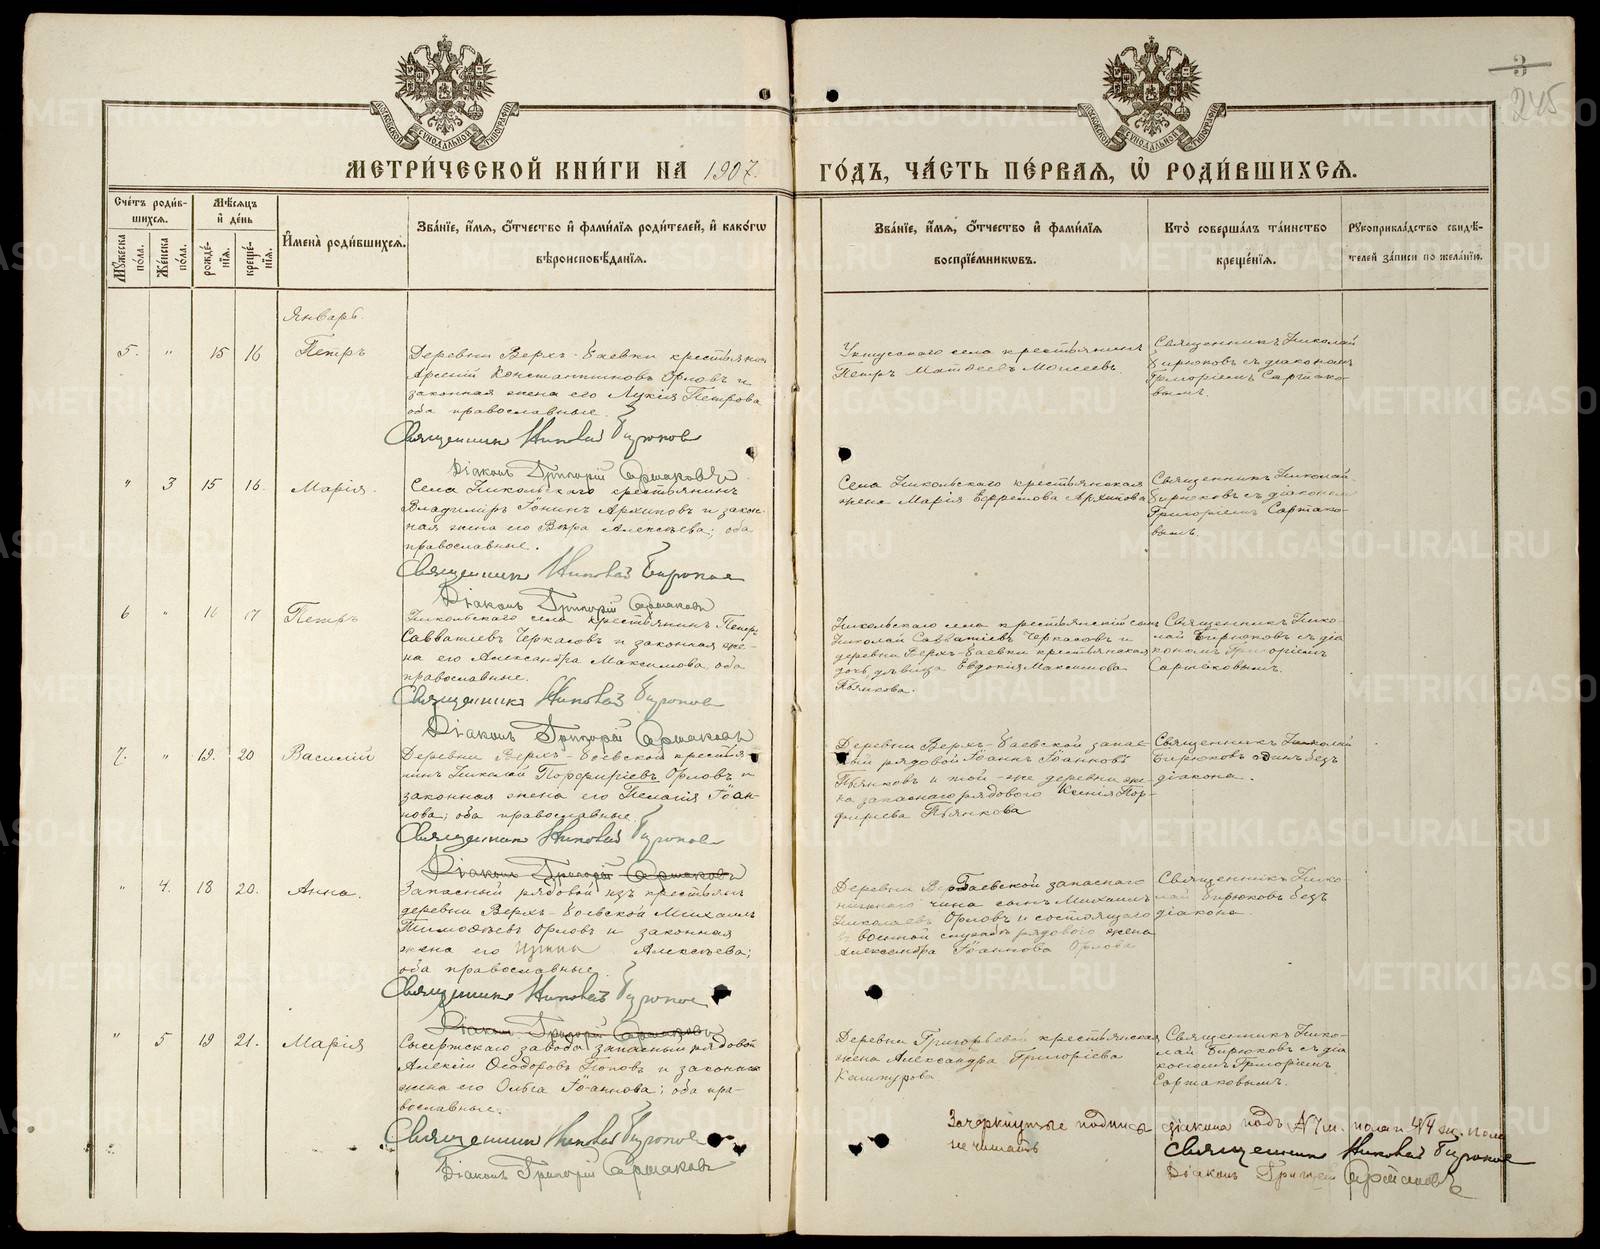 3
245
МЕТРИ́ЧЕСКОЙ КНИ́ГИ НА 1907.
ГО́ДЪ, ЧА́СТЬ ПЕ́РВАЯ, Ѽ РОДИ́ВШИХСЯ.
Сче́тъ роди́в-
шихся.
Мѣ́сяцъ
и҆ де́нь
Мꙋ́жеска по́ла.
Же́нска по́ла.
рожде́-
нїя.
креще́-
нїя.
И҆мена̀ роди́вшихся.
Зва́нїе, и҆́мя, ѻ҆́тчество и҆ фами́лїя роди́телей, и҆ како́гѡ
вѣроисповѣ́данїя.
Зва́нїе, и҆́мя, ѻ҆́тчество и҆ фами́лїя
воспрїе́мникѡвъ.
Кто̀ соверша́лъ та́инство
креще́нїя.
Рꙋкоприкла́дство свидѣ́-
телей за́писи по жела́нїю.
Январь.
5. " 15 16 Петръ
Деревни Верх-Баевки крестьянин
Арсений Константиновъ Орловъ и
законная жена его Лукія Петрова
оба православные.
Священникъ Николай Бирюков
Діаконъ Григорій Сартаковъ
Уктусскаго села крестьянинъ
Петръ Матвеевъ Моисеевъ.
Священникъ Николай
Бирюковъ съ діакономъ
Григоріемъ Сартако-
вымъ.
" 3 15 16. Марія.
Села Никольскаго крестьянинъ
Владиміръ Іоннинъ Архиповъ и закон-
ная жена его Вѣра Алексѣева; оба
православные.
Священник Николай Бирюков
Діаконъ Григорій Сартаковъ
Села Никольскаго крестьянская
жена Марія Ефремова Архипова
Священникъ Николай
Бирюковъ съ діаконом
Григоріемъ Сартако-
вымъ.
6 " 16 17 Петръ
Никольскаго села крестьянинъ Петръ
Савватіевъ Черкасовъ и законная же-
на его Александра Максимова оба
православные.
Священникъ Николай Бирюков
Діаконъ Григорій Сартаковъ
Никольскаго села крестьянскій сын
Николай Савватіевъ Черкасовъ и
деревни Верх-Баевки крестьянская
дочь дѣвица Евдокія Максимова
Пьянкова.
Священникъ Нико-
лай Бирюковъ съ діа
кономъ Григоріемъ
Сартаковымъ.
7. " 19. 20 Василій
Деревни Верхъ-Боевской крестья-
нинъ Николай Порфиріевъ Орловъ и
законная жена его Пелагія Іоан-
нова; оба православные.
Священник Николай Бирюков
Діаконъ Григорій Сартаковъ
Деревни Верхъ-Баевской запас-
ный рядовой Іоаннъ Іоанновъ
Пьянковъ и той-же деревни же-
на запаснаго рядового Ксенія Пор-
фирьева Пьянкова
Священникъ Николай
Бирюковъ одинъ безъ
діакона.
" 4. 18 20. Анна.
Запасный рядовой изъ крестьян
деревни Верхъ-Боевской Михаилъ
Тимоѳеевъ Орловъ и законная
жена его Алексѣева;
оба православные.
Священник Николай Бирюков
Діаконъ Григорій Сартаковъ
Деревни Баевской запаснаго
нижняго чина сынъ Михаилъ
Николаевъ Орловъ и состоящаго
в военной службѣ рядового жена
Александра Іоаннова Орлова
Священникъ Нико-
лай Бирюковъ безъ
діакона.
" 5 19 21. Марія
Сысертскаго завода запасный рядовой
Алексій Ѳеодоровъ Поповъ и законная
жена его Ольга Іоаннова; оба пра-
вославные.
Священник Николай Бирюков
Діаконъ Григорій Сартаковъ
Деревни Григорьевой крестьянская
жена Александра Григоріева
Кашпурова
Священникъ Нико-
лай Бирюковъ съ діа
кономъ Григоріемъ
Сартаковымъ.
Зачеркнутые подписи діакона подъ №7 м. пола и №4 ж. пола
не читать
Священник Николай Бирюков
Діаконъ Григорій Сартаковъ
METRIKI.GASO-URAL.RU